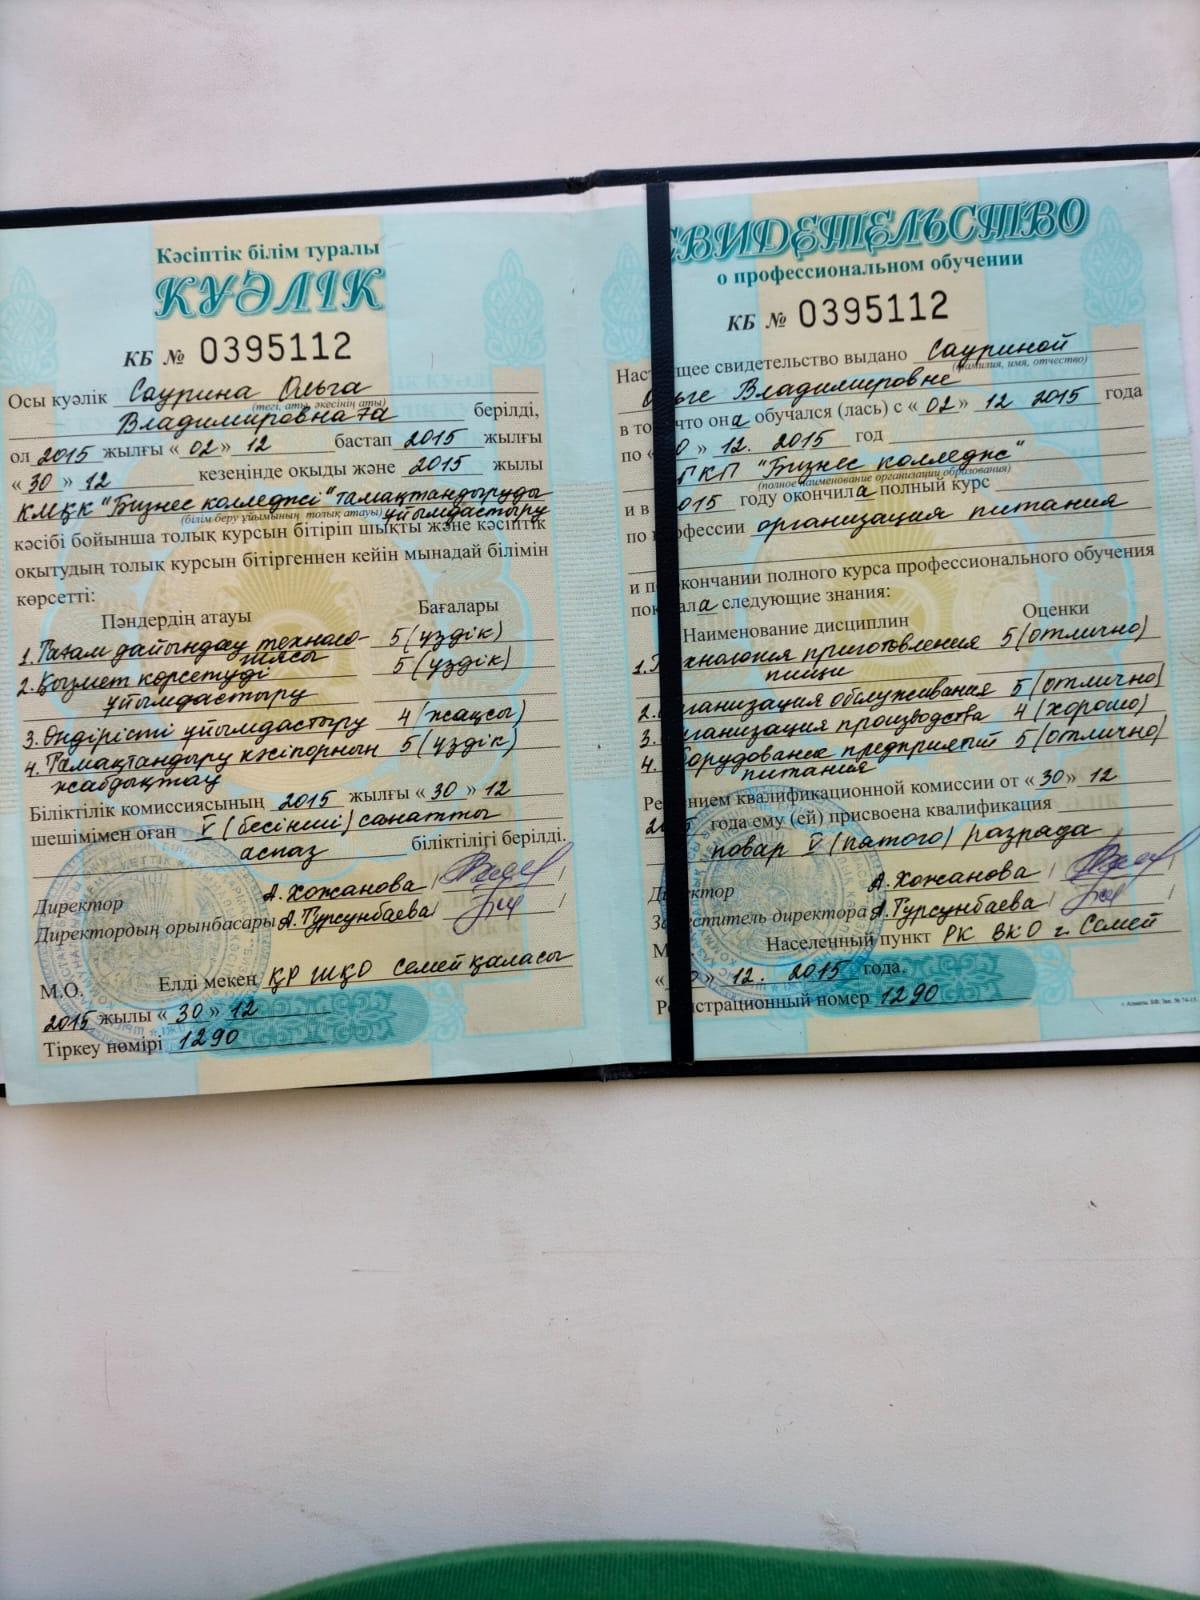 Кәсіптік білім туралы
КУӘЛІК
КБ № 0395112
Осы куәлік Саурина Ольга
(тегі, аты, әкесінің аты)
Владимировнаға берілді,
ол 2015 жылғы « 02 » 12 бастап 2015 жылғы
« 30 » 12 кезеңінде оқыды және 2015 жылы
КМҚК "Бизнес колледжі" тамақтандыруды
(білім беру ұйымының толық атауы) ұйымдастыру
кәсібі бойынша толық курсын бітіріп шықты және кәсіптік
оқытудың толық курсын бітіргеннен кейін мынадай білімін
көрсетті:
Пәндердің атауы Бағалары
1. Тағам дайындау техноло- 5 (үздік)
гиясы
2. Қызмет көрсетуді 5 (үздік)
ұйымдастыру
3. Өндірісті ұйымдастыру 4 (жақсы)
4. Тамақтандыру кәсіпорнын 5 (үздік)
жабдықтау
Біліктілік комиссиясының 2015 жылғы « 30 » 12
шешімімен оған V (бесінші) санатты
аспаз біліктілігі берілді.
Директор А. Хожанова
Директордың орынбасары А. Турсунбаева
М.О. Елді мекен ҚР ШҚО Семей қаласы
2015 жылы « 30 » 12
Тіркеу нөмірі 1290
СВИДЕТЕЛЬСТВО
о профессиональном обучении
КБ № 0395112
Нас щее свидетельство выдано Сауриной
(фамилия, имя, отчество)
Ольге Владимировне
в то что она обучался (лась) с « 02 » 12 2015 года
по « 0 » 12. 2015 год
ГКП "Бизнес колледж"
(полное наименование организации образования)
и в 015 году окончила полный курс
по фессии организация питания
и п окончании полного курса профессионального обучения
пок ала следующие знания:
Наименование дисциплин Оценки
1. Т хнология приготовления 5 (отлично)
пищи
2. рганизация обслуживания 5 (отлично)
3. ганизация производства 4 (хорошо)
4. орудование предприятий 5 (отлично)
питания
Ре нием квалификационной комиссии от « 30 » 12
2 5 года ему (ей) присвоена квалификация
повар V (пятого) разряда
Ди ктор А. Хожанова
За еститель директора А. Турсунбаева
М Населенный пункт РК ВКО г. Семей
« 0 » 12. 2015 года.
Ре страционный номер 1290